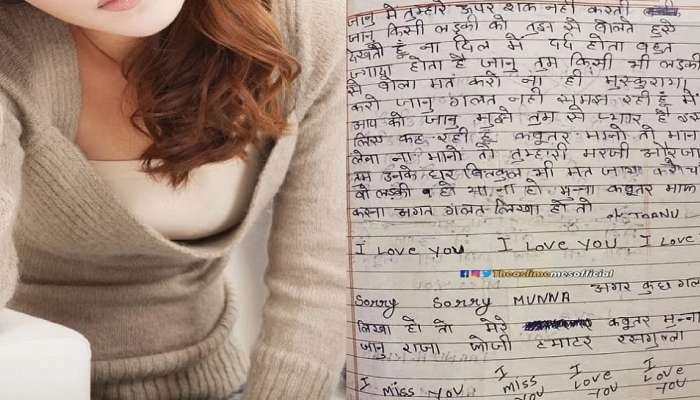 जानू मै तुम्हारे ऊपर शक नहीं करती
जानू किसी लड़की को तुम से बोलते हुऐ
देखती हूँ ना दिल में दर्द होता बहुत
ज्यादा होता है जानू तुम किसी भी लड़की
से बोला मत करो ना ही मुस्कुराया
करो जानू गलत नही समझ रही हूँ में
आप को जानू मुझे तुम से प्यार है इस
लिए कह रही हूँ कबूतर मानो तो मान
लेना ना मानो तो तुम्हारी मरजी ओर जा
तुम उनके घर बिलकुल भी मत जाया करो
वो लड़की हो या ना हो मुन्ना कबूतर माफ
करना अगर गलत लिखा हो तो
I LOVE YOU I LOVE YOU I LOVE
Theaslimemesofficial
Sorry Sorry MUNNA अगर कुछ गल
लिखा हो तो मेरे कबूतर मुन्ना
जानू राजा जोजी टमाटर रसगुल्ला
I MISS YOU I MISS YOU I LOVE YOU I LOVE YOU